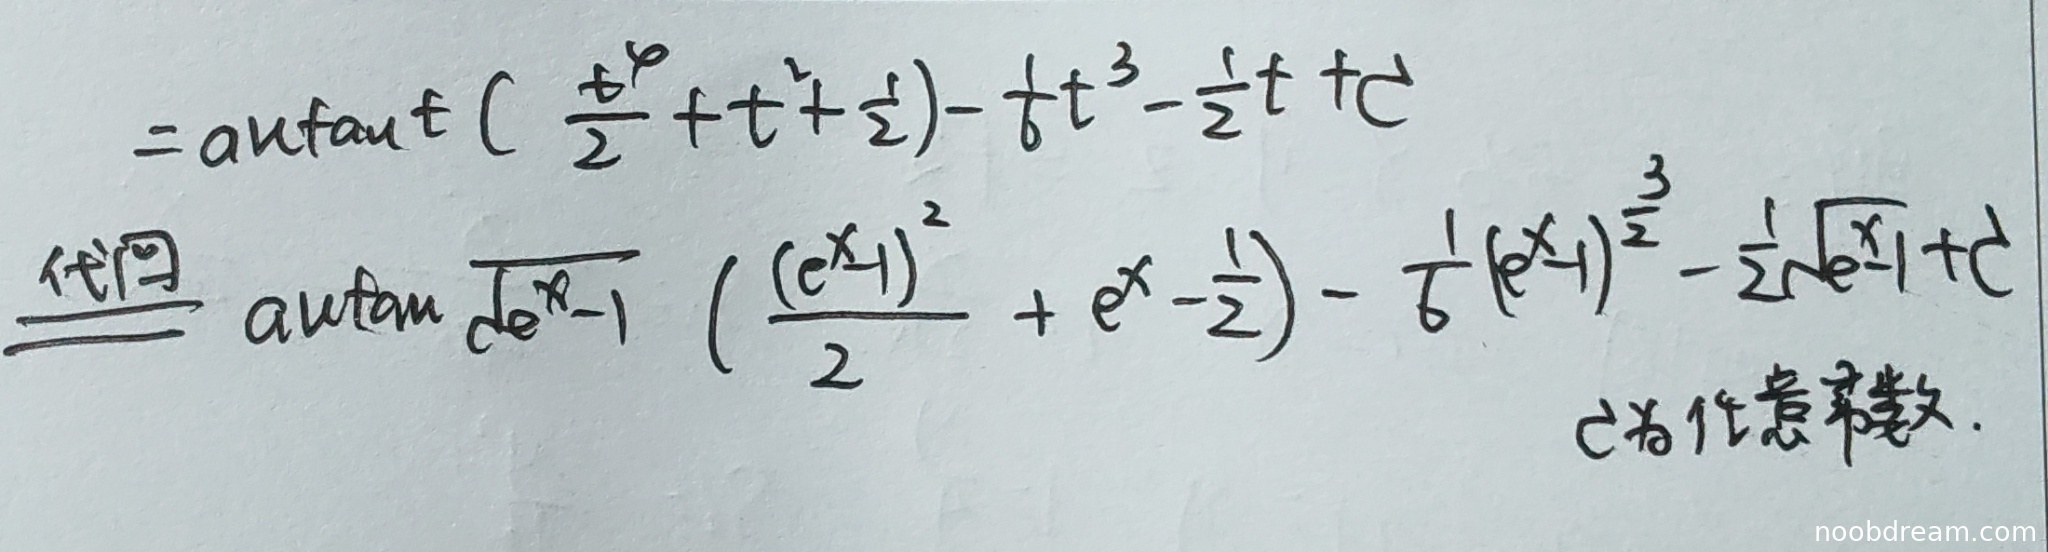 = arctan t ( t⁴/2 + t² + 1/2 ) - 1/6 t³ - 1/2 t + C
代回 arctan √(eˣ-1) ( (eˣ-1)²/2 + eˣ - 1/2 ) - 1/6 (eˣ-1)^(3/2) - 1/2 √(eˣ-1) + C
C为任意常数.
noobdream.com